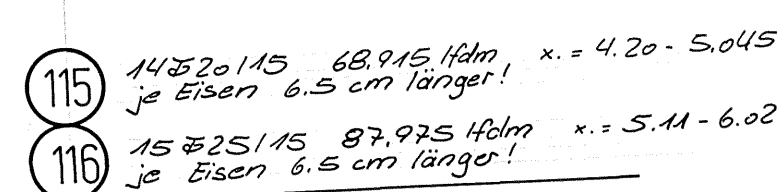 115 14⌀20/15 68.915 lfdm x. = 4.20 - 5.045
je Eisen 6.5 cm länger!
116 15⌀25/15 87.975 lfdm x. = 5.11 - 6.02
je Eisen 6.5 cm länger!